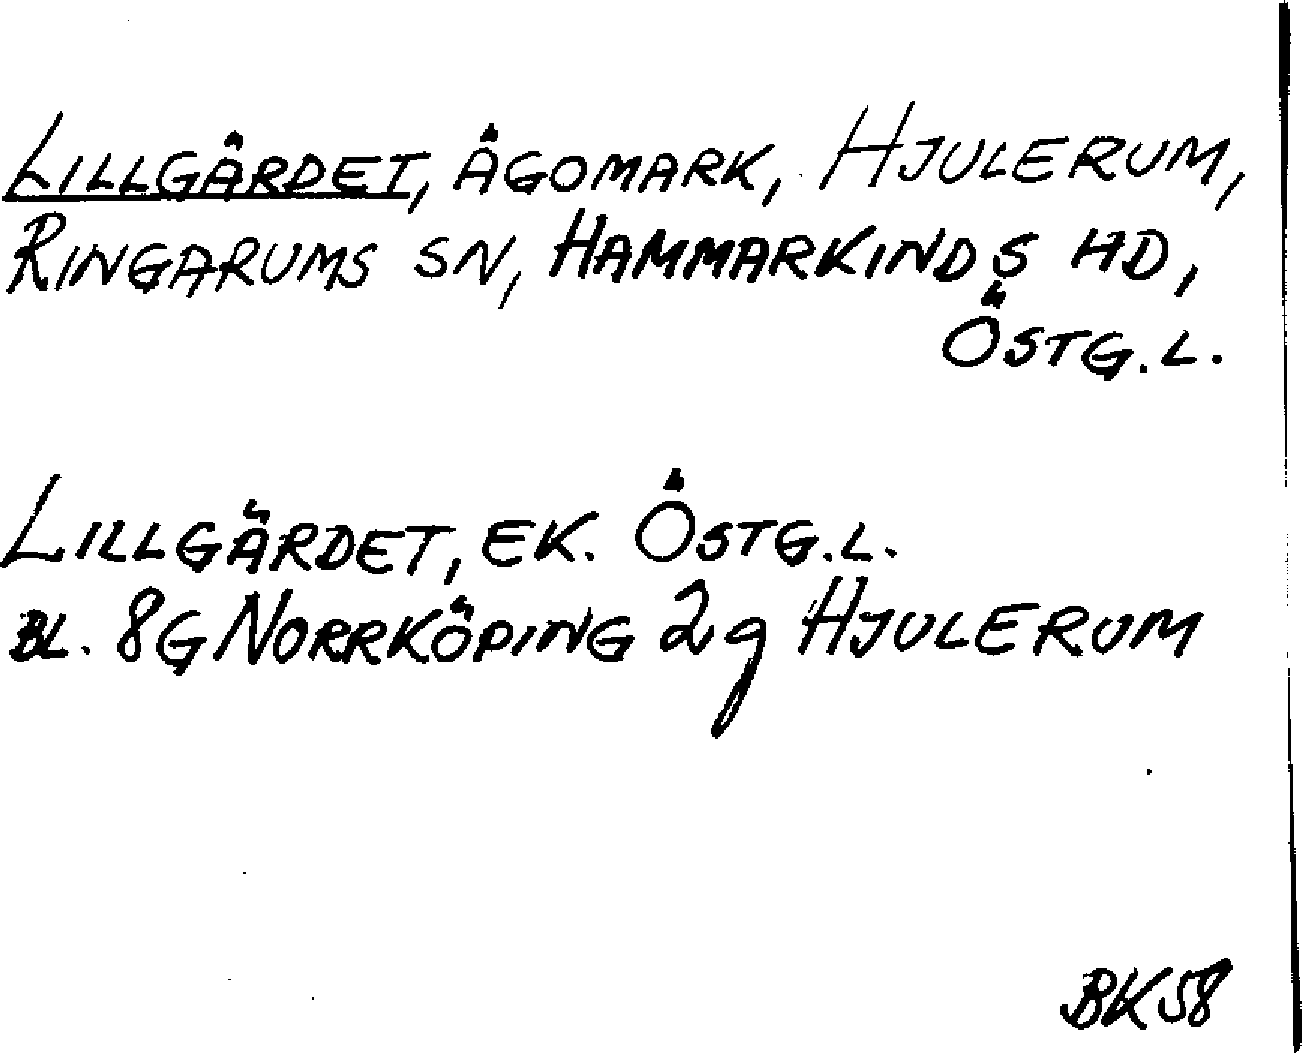 LILLGÄRDET, ÄGOMARK, HJULERUM,
RINGARUMS SN, HAMMARKINDS HD,
ÖSTG.L.
LILLGÄRDET, EK. ÖSTG.L.
BL. 8G NORRKÖPING 2g HJULERUM
BK58